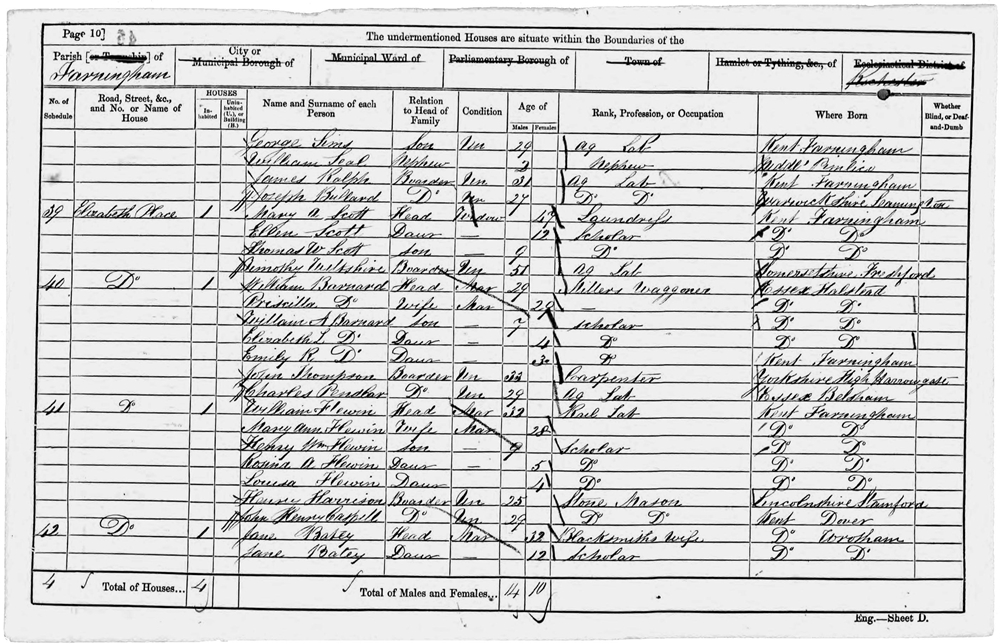 Page 10]
The undermentioned Houses are situate within the Boundaries of the
Parish [or Township] of Farningham
City or Municipal Borough of
Municipal Ward of
Parliamentary Borough of
Town of
Hamlet or Tything, &c., of
Ecclesiastical District of
No. of Schedule
Road, Street, &c., and No. or Name of House
HOUSES
Inhabited
Uninhabited (U.), or Building (B.)
Name and Surname of each Person
Relation to Head of Family
Condition
Age of
Males
Females
Rank, Profession, or Occupation
Where Born
Whether Blind, or Deaf-and-Dumb
George Sims Son Un 29 Ag Lab Kent Farningham
William Seal Nephew 2 Nephew Middx Pimlico
James Ralph Boarder Un 31 Ag Lab Kent Farningham
Joseph Bullard Do Un 27 Do Do Warwickshire Leamington
39 Elizabeth Place 1 Mary A Scott Head Widow 47 Laundress Kent Farningham
Ellen Scott Daur — 12 Scholar Do Do
Thomas W Scott son — 9 Do Do Do
Timothy Wiltshire Boarder Un 51 Ag Lab Somersetshire Freshford
40 Do 1 William Barnard Head Mar 29 Millers Waggoner Essex Halstead
Priscilla Do Wife Mar 29 — Do Do
William A Barnard son — 7 scholar Do Do
Elizabeth L Do Daur — 4 Do Do Do
Emily R Do Daur — 3 Do Kent Farningham
John Thompson Boarder Un 33 Carpenter Yorkshire High Harrowgate
Charles Do Un 29 Ag Lab Essex Belsham
41 Do 1 William Flewin Head Mar 32 Rail Lab Kent Farningham
Mary Ann Flewin Wife Mar 28 Do Do
Henry Wm Flewin son — 9 Scholar Do Do
Rosina A Flewin Daur — 5 Do Do Do
Louisa Flewin Daur — 4 Do Do Do
Henry Harrison Boarder Un 25 Stone Mason Lincolnshire Stamford
John Henry Do Un 29 Do Do Kent Dover
42 Do 1 Jane Batey Head Mar 32 Blacksmiths Wife Do Wrotham
Jane Batey Daur — 12 Scholar Do Do
4 Total of Houses... 4 Total of Males and Females... 14 10
Eng.—Sheet D.